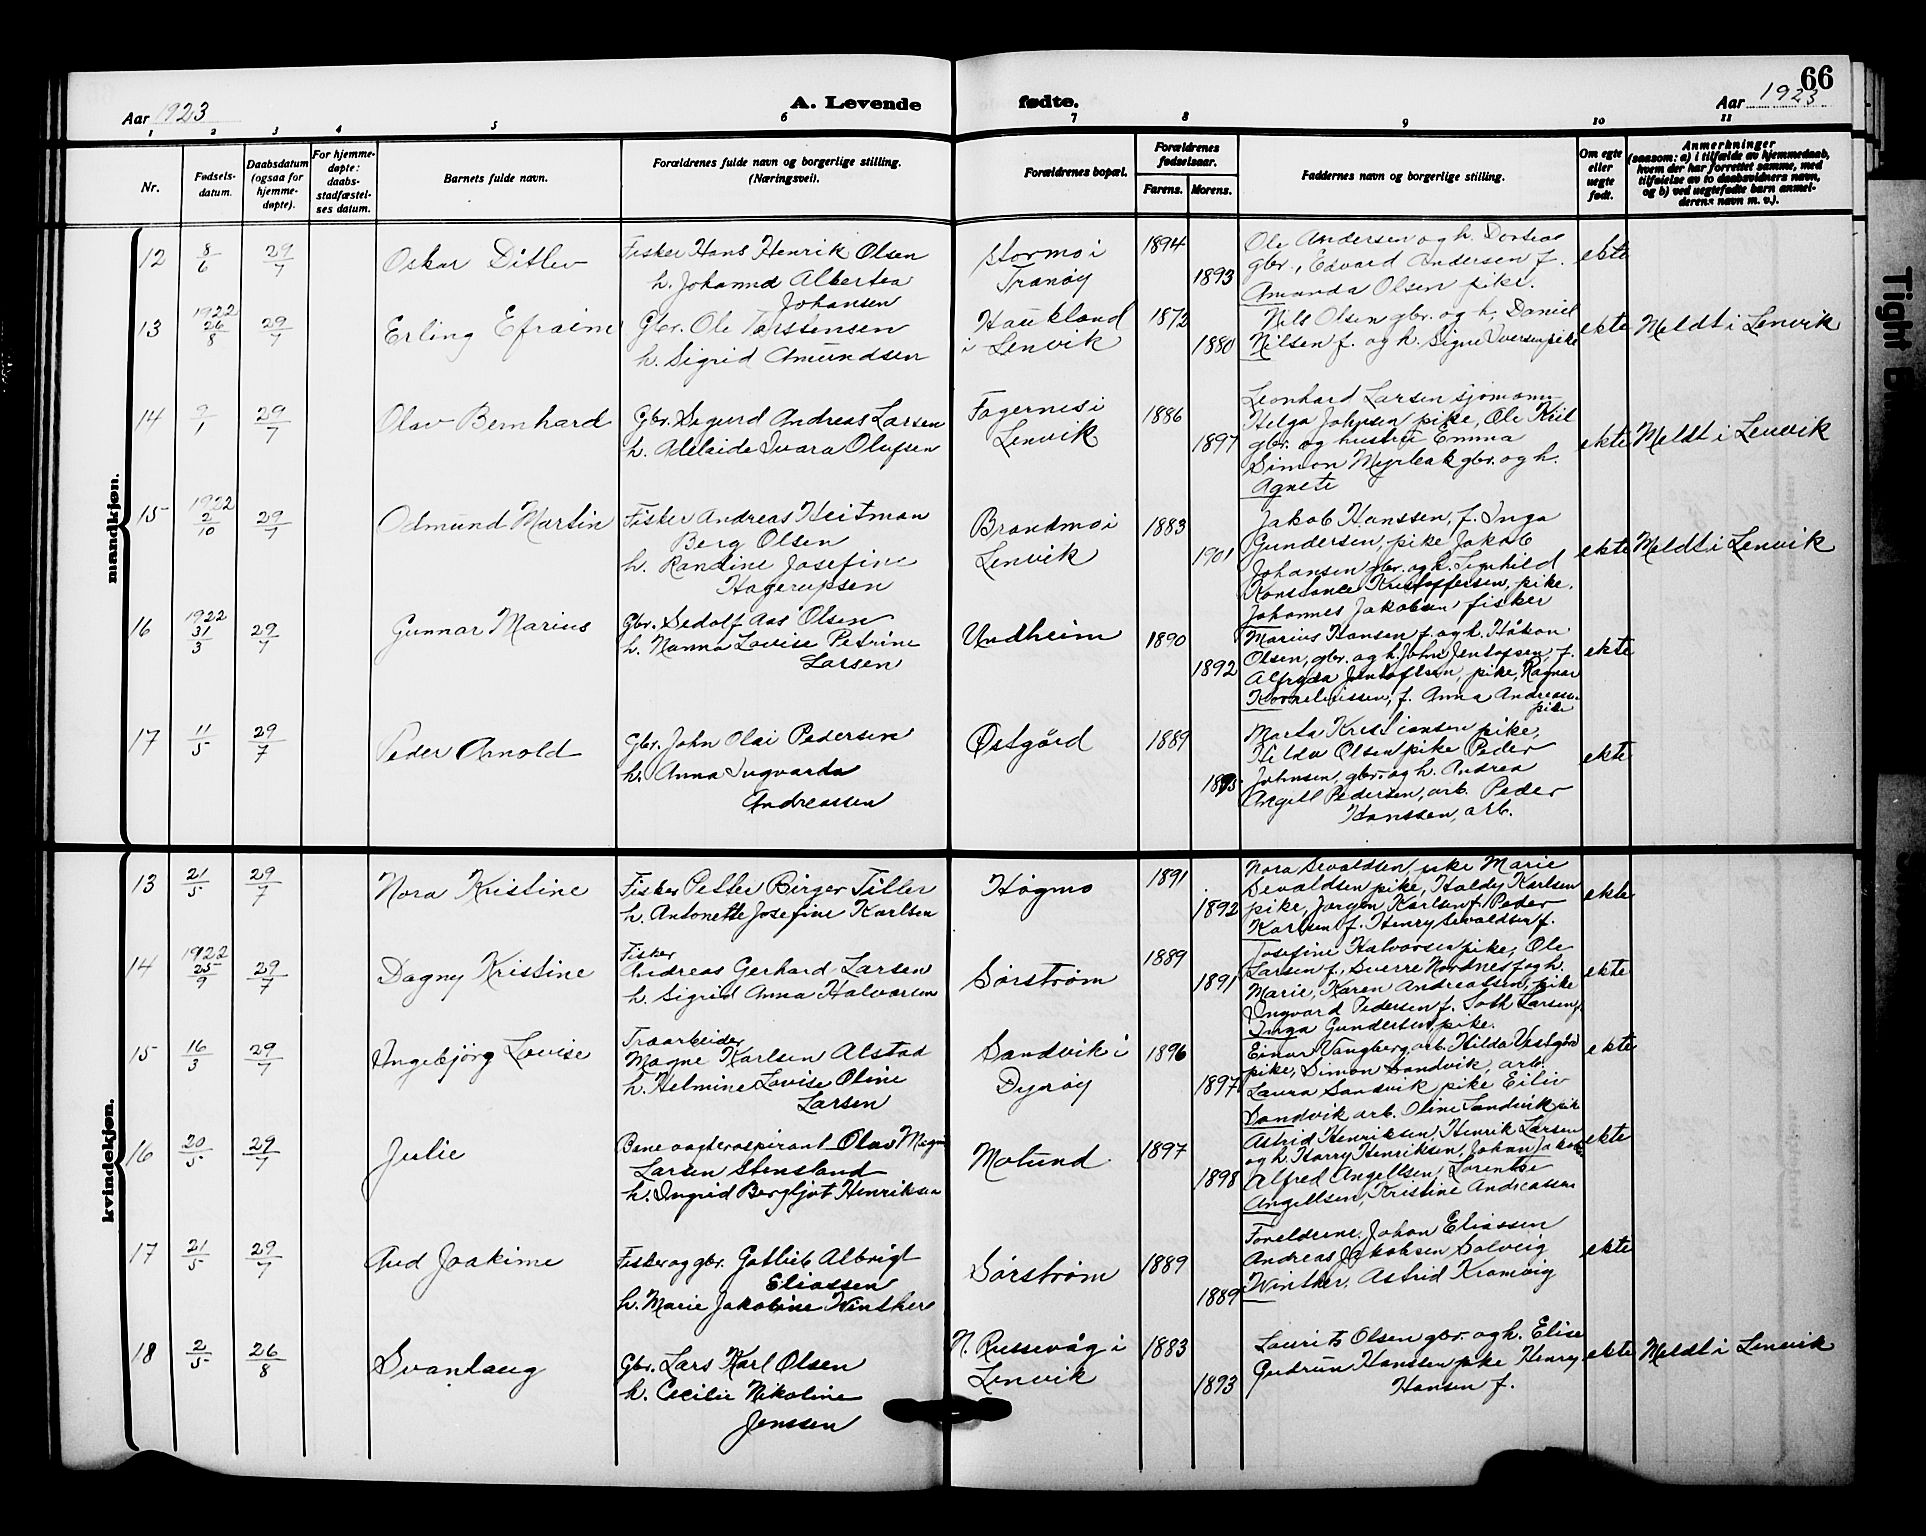 66
Aar 1923
A. Levende fødte.
Aar 1923
1 2 3 4 5 6 7 8 9 10 11
Nr.
Fødsels-
datum.
Daabsdatum
(ogsaa for
hjemme-
døpte).
For hjemme-
døpte:
daabs-
stadfæstel-
ses datum.
Barnets fulde navn.
Forældrenes fulde navn og borgerlige stilling.
(Næringsvei).
Forældrenes bopæl.
Forældrenes
fødselsaar.
Farens. Morens.
Faddernes navn og borgerlige stilling.
Om egte
eller
uegte
født.
Anmerkninger
(saasom: a) i tilfælde av hjemmedaab,
hvem der har forrettet samme, med
tilføielse av to daabsvidners navn,
og b) ved uegtefødte barn anmel-
derens navn m. v.).
mandkjøn.
12
8/6
29/7
Oskar Ditlev
Fisker Hans Henrik Olsen
h. Johanna Albertea
Johansen
Stormo i
Tranøy
1894
1893
Ole Andersen og h. Dortea
gbr., Edvard Andersen f.
Amanda Olsen pike.
ekte
13
1922
26/8
29/7
Erling Efraim
Gbr. Ole Torstensen
h. Sigrid Amundsen
Haukland
i Lenvik
1872
1880
Nils Olsen gbr. og h. Daniel
Nilsen f. og h. Signe Iversen pike
ekte
Meldt i Lenvik
14
9/1
29/7
Olav Bernhard
Gbr. Sigurd Andreas Larsen
h. Adelaide Ivara Olufsen
Fagernes i
Lenvik
1886
1897
Leonhard Larsen sjømann
Helga Johnsen pike, Ole Kiil
gbr. og hustru Emma
Simon Myrleak gbr. og h.
Agnete
ekte
Meldt i Lenvik
15
1922
2/10
29/7
Odmund Martin
Fisker Andreas Heitman
Berg Olsen
h. Randine Josefine
Hagerupsen
Brandmo i
Lenvik
1883
1901
Jakob Hanssen, f. Inga
Gundersen, pike Jakob
Johansen gbr. og h. Signhild
Konstance Kristoffersen, pike.
Johannes Jakobsen fisker
ekte
Meldt i Lenvik
16
1922
31/3
29/7
Gunnar Marius
Gbr. Sedolf Aas Olsen
h. Nanna Lovise Petrine
Larsen
Undheim
1890
1892
Marius Hansen f. og h. Håkon
Olsen, gbr. og h. John Jentofsen, f.
Alfryda Jentoftsen, pike, Ragnar
Korneliussen, f. Anna Andreass.
pike
ekte
17
11/5
29/7
Peder Arnold
Gbr. John Olai Pedersen
h. Anna Ingvarda
Andreassen
Østgård
1889
1895
Marta Kristiansen pike,
Hilda Olsen pike Peder
Johnsen, gbr. og h. Andrea
Angell Pedersen, arb. Peder
Hanssen, arb.
ekte
kvindekjøn.
13
21/5
29/7
Nora Kristine
Fisker Petter Birger Tiller
h. Antonette Josefine Karlsen
Høgmo
1891
1892
Nora Sevaldsen pike Marie
Sevaldsen pike, Haldy Karlsen
pike, Jørgen Karlsen f. Peder
Karlsen f. Henry Sevaldsen f.
ekte
14
1922
25/9
29/7
Dagny Kristine
Fisker
Andreas Gerhard Larsen
h. Sigrid Anna Halvorsen
Sørstrøm
1889
1891
Josefine Halvorsen pike, Ole
Larsen f., Sverre Nordnes f. og h.
Marie, Karen Andreassen, pike
Ingvard Pedersen f. Soth Larsen,
Inga Gundersen, pike.
ekte
15
16/3
29/7
Ingebjörg Lovise
Træarbeider
Magne Karlsen Alstad
h. Helmine Lovise Oline
Larsen
Sandvik i
Dyrøy
1896
1897
Einar Vangberg, arb. Hilda Vestgård
pike, Simon Sandvik, arb.
Laura Sandvik pike Eiliv
Sandvik arb. Oline Sandvik pik
ekte
16
20/5
29/7
Julie
Banevogteraspirant Olav Magn
Larsen Stensland
h. Ingrid Bergljot Henriksen
Molund
1897
1898
Astrid Henriksen, Henrik Larsen
og h. Harry Henriksen, Johan Jakobs
Alfred Angellsen, Lorentse
Angellsen, Kristine Andreassen
ekte
17
21/5
29/7
Aud Joakime
Fisker og gbr. Gotlieb Albrigt
Eliassen
h. Marie Jakobine Winther
Sørstrøm
1889
1889
Foreldrene. Johan Eliassen
Andreas Jakobsen Solveig
Winther, Astrid Kramvig
ekte
18
2/5
26/8
Svanlaug
Gbr. Lars Karl Olsen
h. Cecilie Nikoline
Jenssen
N. Russevåg i
Lenvik
1883
1893
Laurits Olsen gbr. og h. Elise
Gudrun Hanssen pike Henry
Hansen f.
ekte
Meldt i Lenvik
Tight B